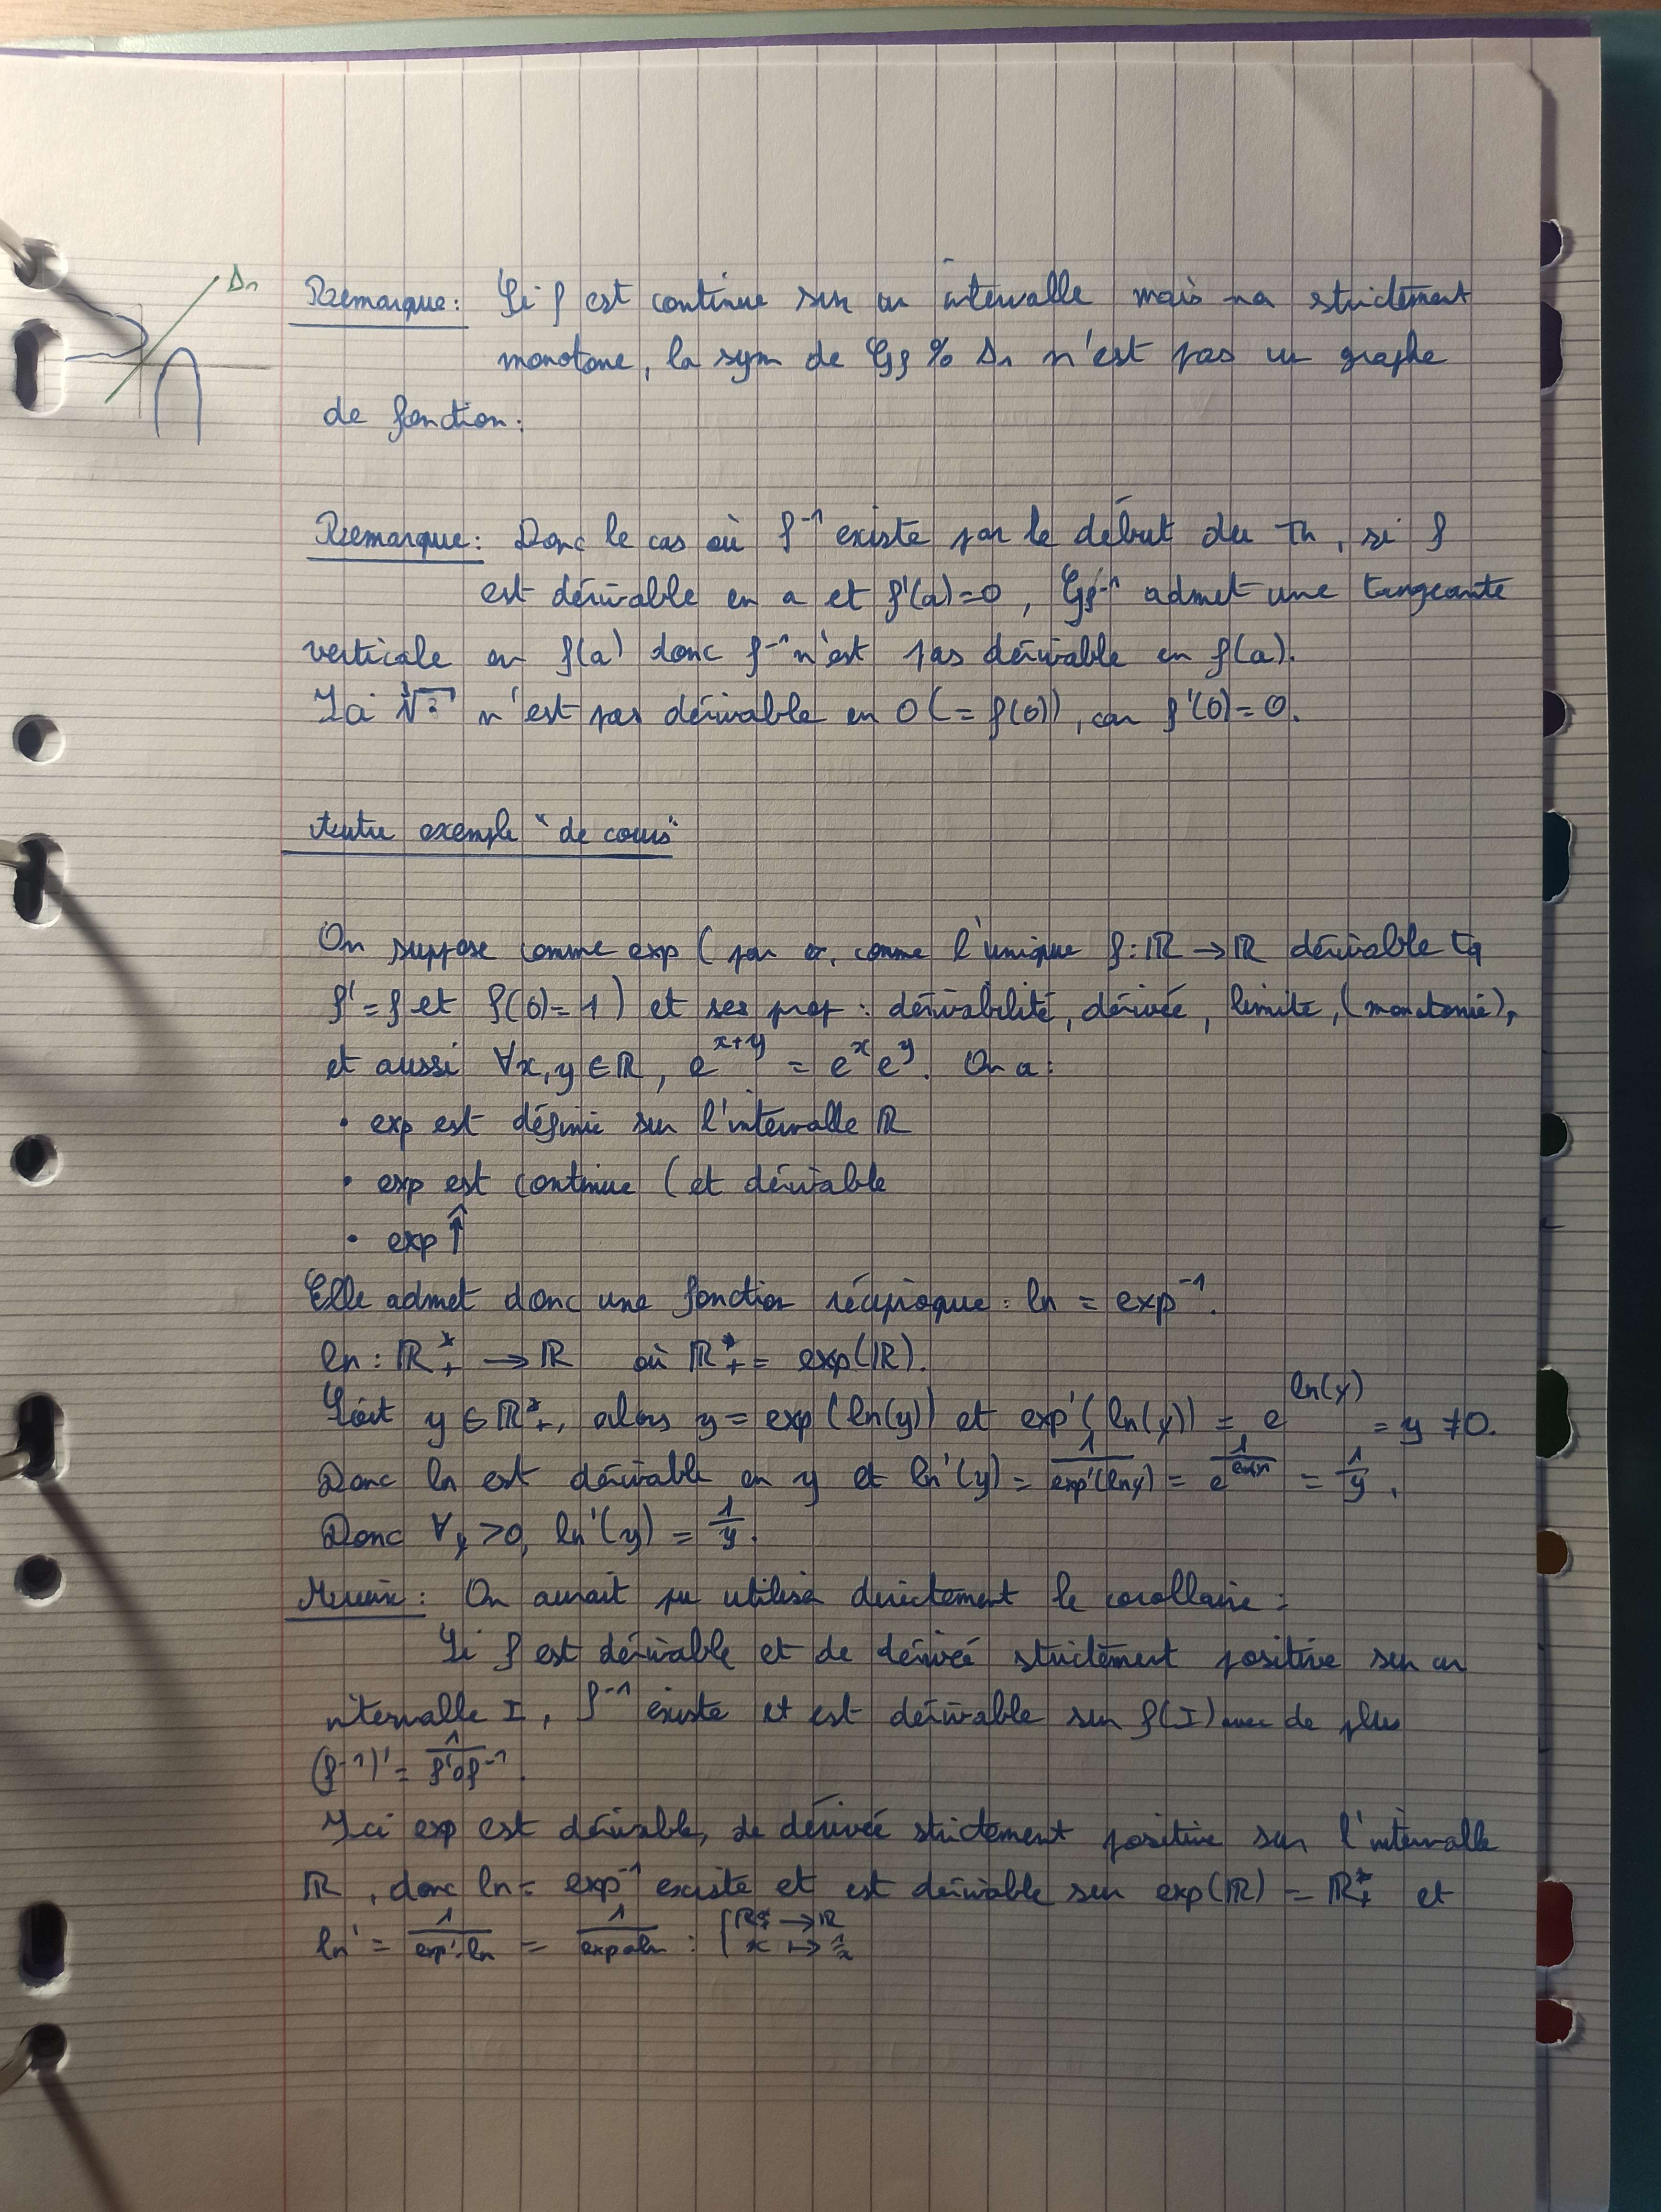 Δ₁
Remarque : Si f est continue sur un intervalle mais na strictement
monotone, la sym de Gf % Δ₁ n'est pas un graphe
de fonction.
Remarque : Donc le cas où f⁻¹ existe par le début du Th, si f
est dérivable en a et f'(a)=0, Gf⁻¹ admet une tangeante
verticale en f(a) donc f⁻¹ n'est pas dérivable en f(a).
Ici ∛· n'est pas dérivable en 0 (= f(0)), car f'(0)=0.
Autre exemple "de cours"
On suppose comme exp (par ex, comme l'unique f : ℝ → ℝ dérivable tq
f' = f et f(0) = 1) et ses prop : dérivabilité, dérivée, limite, (monotonie),
et aussi ∀x, y ∈ ℝ, e^(x+y) = e^x e^y. On a :
• exp est définie sur l'intervalle ℝ
• exp est continue (et dérivable
• exp ↑
Elle admet donc une fonction réciproque : ln = exp⁻¹.
ln : ℝ₊* → ℝ où ℝ₊* = exp(ℝ).
Soit y ∈ ℝ₊*, alors y = exp(ln(y)) et exp'(ln(y)) = e^ln(y) = y ≠ 0.
Donc ln est dérivable en y et ln'(y) = 1/exp'(lny) = 1/e^ln(y) = 1/y.
Donc ∀y > 0, ln'(y) = 1/y.
Mieux : On aurait pu utilisé directement le corollaire :
Si f est dérivable et de dérivée strictement positive sur un
intervalle I, f⁻¹ existe et est dérivable sur f(I) avec de plus
(f⁻¹)' = 1/f'∘f⁻¹.
Ici exp est dérivable, de dérivée strictement positive sur l'intervalle
ℝ, donc ln = exp⁻¹ existe et est dérivable sur exp(ℝ) = ℝ₊* et
ln' = 1/exp'∘ln = 1/exp∘ln : { ℝ₊* → ℝ
x ↦ 1/x